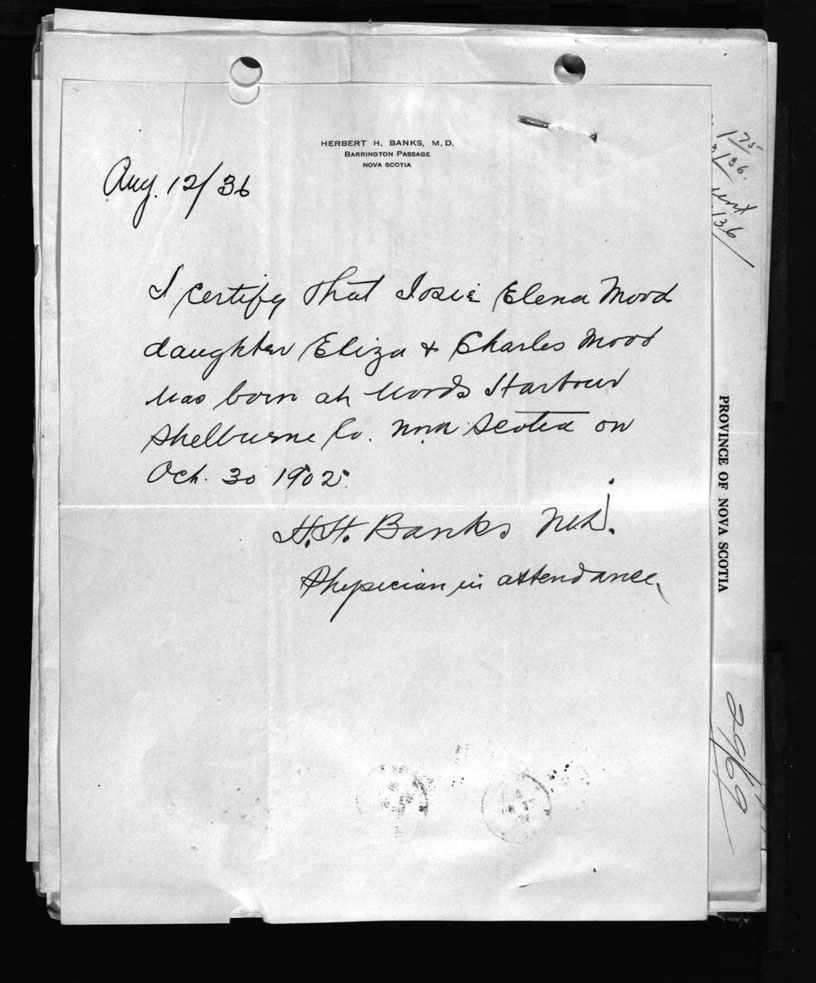 HERBERT H. BANKS, M.D.
BARRINGTON PASSAGE
NOVA SCOTIA
Aug. 12/36
I certify that Josie Elena Mood
daughter Eliza & Charles Mood
was born at Woods Harbour
Shelburne Co. Nova Scotia on
Oct. 30 1902.
H.H. Banks M.D.
Physician in attendance.
175
136
PROVINCE OF NOVA SCOTIA
2969